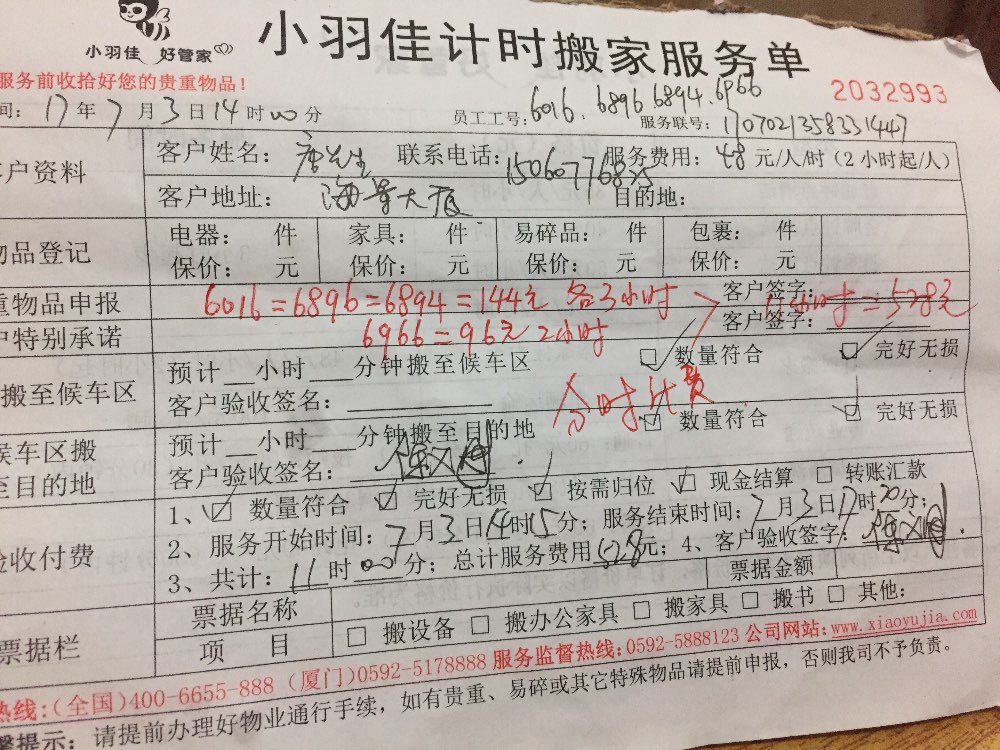 小羽佳 好管家
小羽佳计时搬家服务单
服务前收拾好您的贵重物品！
2032993
间: 17年7月3日14时00分 员工工号: 6016. 6896 6894. 6966
服务联号: 1707021358331447
客户资料 客户姓名: 唐先生 联系电话: 服务费用: 48元/人/时（2小时起/人）
客户地址: 海景大厦 目的地:
物品登记 电器: 件 家具: 件 易碎品: 件 包裹: 件
保价: 元 保价: 元 保价: 元 保价: 元
重物品申报 6016=6896=6894=144元 各3小时 客户签字:
11小时=528元
户特别承诺 6966=96元 2小时 客户签字:
搬至候车区 预计__小时___分钟搬至候车区 数量符合 完好无损
客户验收签名: 分时计费
数量符合 完好无损
候车区搬至目的地 预计__小时___分钟搬至目的地
客户验收签名:
验收付费 1、数量符合 完好无损 按需归位 现金结算 转账汇款
2、服务开始时间: 7月3日14时15分；服务结束时间: 7月3日17时20分；
3、共计: 11时00分；总计服务费用528元；4、客户验收签字:
票据栏 票据名称 票据金额
项 目 搬设备 搬办公家具 搬家具 搬书 其他:
热线:(全国)400-6655-888 (厦门)0592-5178888 服务监督热线:0592-5888123 公司网站:www.xiaoyujia.com
馨提示: 请提前办理好物业通行手续，如有贵重、易碎或其它特殊物品请提前申报，否则我司不予负责。